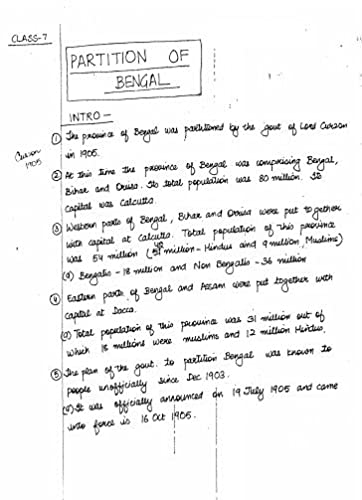 CLASS-7
PARTITION OF
BENGAL
INTRO -
Curzon
1905
① The province of Bengal was partitioned by the govt of Lord Curzon
in 1905.
② At this time the province of Bengal was comprising Bengal,
Bihar and Orissa. Its total population was 80 million. Its
capital was Calcutta.
③ Western parts of Bengal, Bihar and Orrisa were put together
with capital at Calcutta. Total population of this province
was 54 million (42 million - Hindus and 9 million, Muslims)
(a) Bengalis - 18 million and Non Bengalis - 36 million
④ Eastern parts of Bengal and Assam were put together with
capital at Dacca.
(a) Total population of this province was 31 million out of
which 18 millions were muslims and 12 million Hindus.
⑤ The plan of the govt. to partition Bengal was known to
people unofficially since Dec 1903.
(a) It was officially announced on 19 July 1905 and came
into force is 16 Oct 1905.